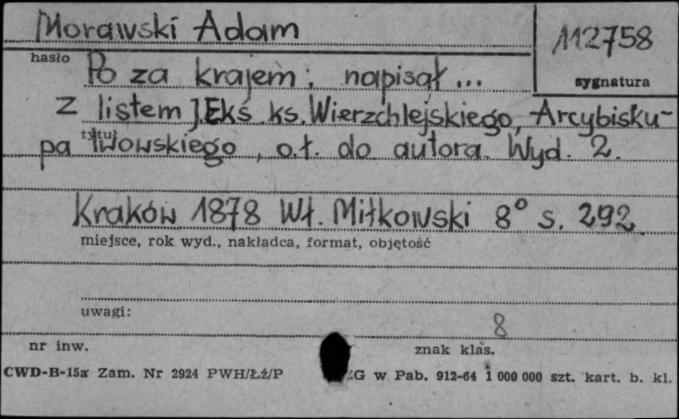 Morawski Adam
112758
hasło
sygnatura
Po za krajem; napisał ...
z listem J.Ekś. ks. Wierzchlejskiego, Arcybisku-
tytuł
pa lwowskiego, o.ł. do autora. Wyd. 2.
Kraków 1878 Wł. Miłkowski 8° s. 292.
miejsce, rok wyd., nakładca, format, objętość
uwagi:
8
nr inw.
znak klas.
CWD-B-15a Zam. Nr 2924 PWH/Łź/P ZG w Pab. 912-64 1 000 000 szt. kart. b. kl.